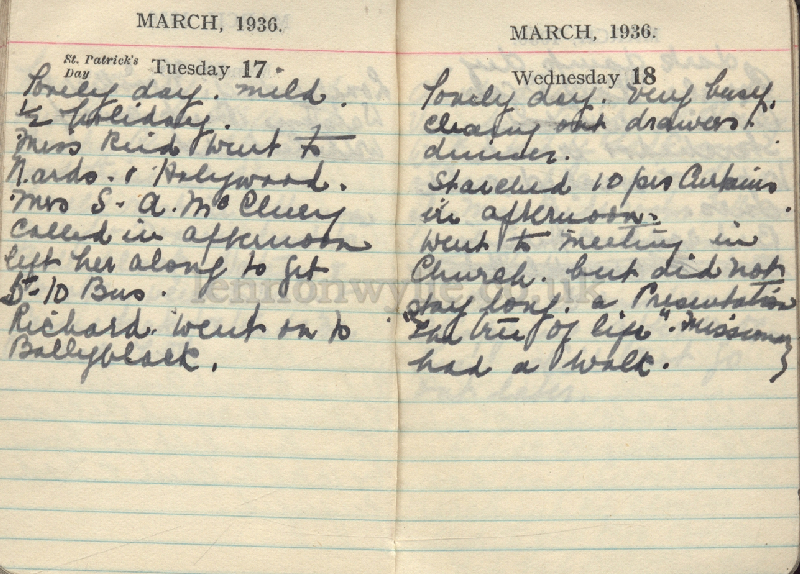 MARCH, 1936.
St. Patrick's Day Tuesday 17
Lovely day. mild.
1/2 holiday.
Miss Reid went to
N.ards. & Holywood.
Mrs S. A. McCluey
called in afternoon
left her along to get
5-10 Bus.
Richard went on to
Ballyblack.
MARCH, 1936.
Wednesday 18
Lovely day. Very busy
clearing out drawers.
dinner.
Starched 10 prs Curtains
in afternoon.
Went to meeting in
Church. but did not
stay long. a Presentation
"The tree of life". Missionary
had a walk.
lennonwylie.co.uk